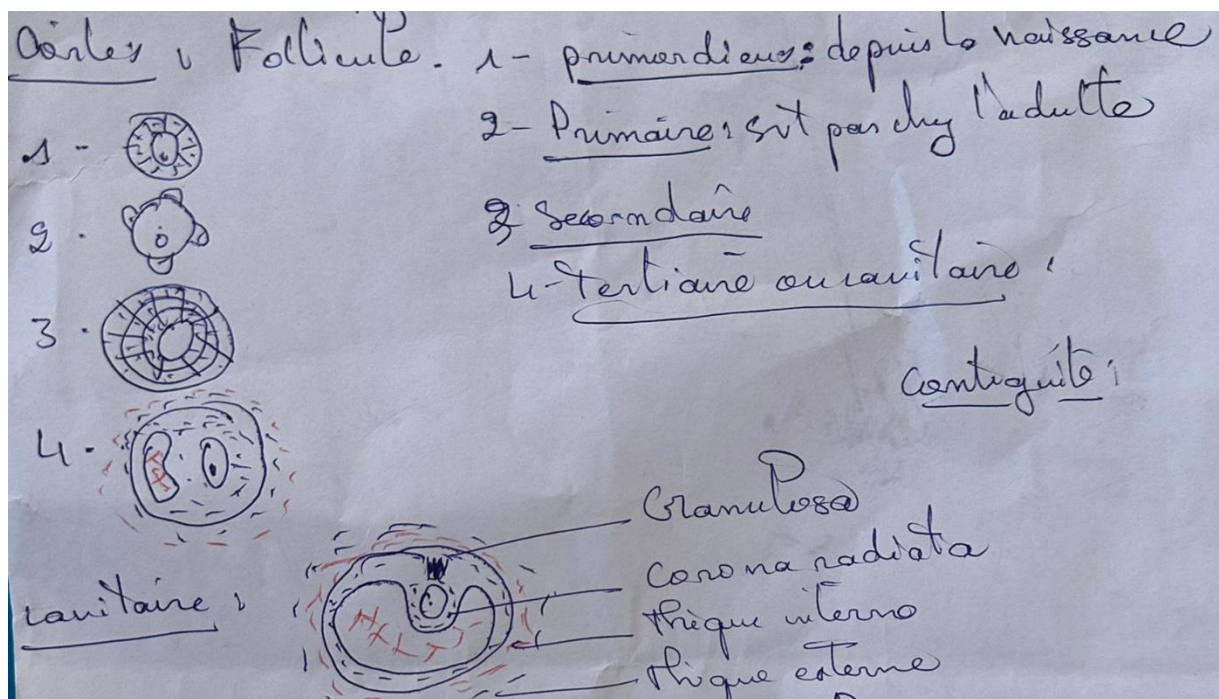 Follicule. 1- primordiaux: depuis la naissance
1 -
2- Primaire: st pas chez l'adulte
2.
3- Secorndaire
4- Tertiaire ou cavitaire:
3.
Contiguité:
4.
Granulosa
corona radiata
cavitaire:
thèque interne
thèque externe